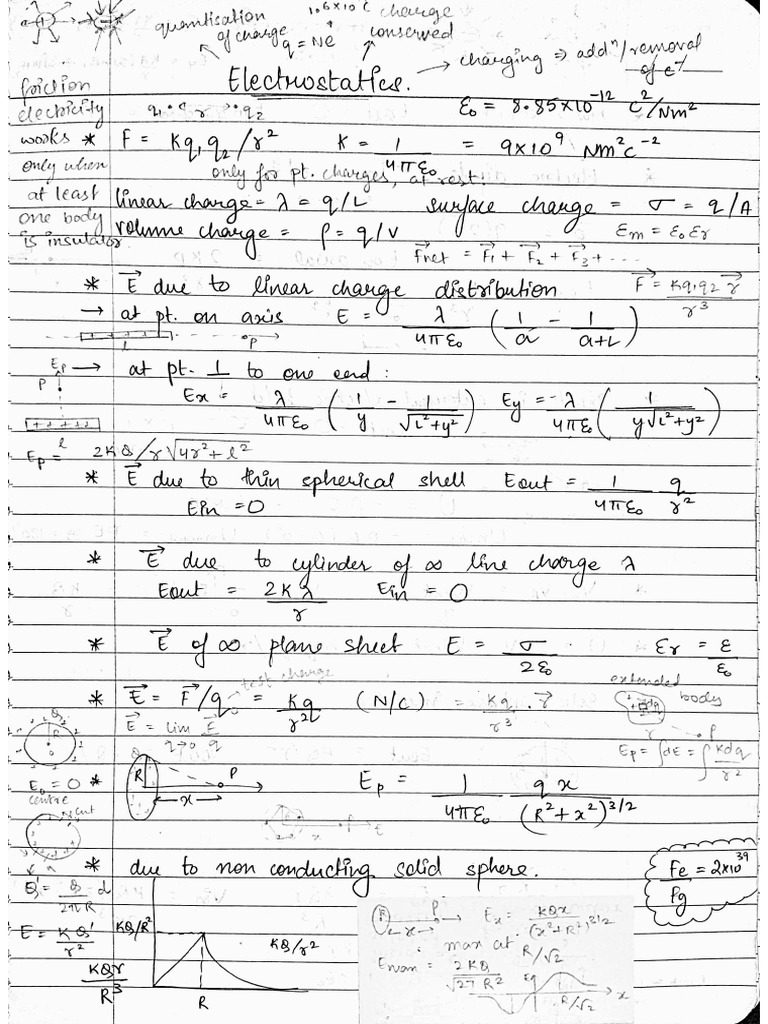 1.6×10 C charge
quantisation of charge q = Ne conserved
charging ⇒ addⁿ/removal of e⁻
Electrostatics.
friction electricity works only when at least one body is insulator.
q₁ r q₂ ε₀ = 8.85×10⁻¹² C²/Nm²
* F = Kq₁q₂/r² K = 1/4πε₀ = 9×10⁹ Nm²C⁻²
only for pt. charges, at rest.
linear charge = λ = q/L surface charge = σ = q/A
volume charge = ρ = q/V εm = ε₀εr
F⃗net = F⃗₁ + F⃗₂ + F⃗₃ + ...
* E⃗ due to linear charge distribution F⃗ = Kq₁q₂ r⃗/r³
→ at pt. on axis E = λ/4πε₀ (1/a − 1/a+L)
l P
Ep P → at pt. ⊥ to one end :
Ex = λ/4πε₀ (1/y − 1/√L²+y²) Ey = λ/4πε₀ (1/y√L²+y²)
l
Ep = 2KQ/r√4r²+l²
* E⃗ due to thin spherical shell Eout = 1/4πε₀ q/r²
Ein = 0
* E⃗ due to cylinder of ∞ line charge λ
Eout = 2Kλ/r Ein = 0
* E⃗ of ∞ plane sheet E = σ/2ε₀ εr = ε/ε₀
* E⃗ = F⃗/q₀ = Kq/r² (N/C) = Kq/r³ . r⃗
test charge
extended body
dq
E⃗ = lim q→0 E⃗/q
r P
Ep = ∫dE = ∫Kdq/r²
R
E₀ = 0 centre
* R x P Ep = 1/4πε₀ qx/(R²+x²)³/²
cut
* due to non conducting solid sphere.
Fe/Fg = 2×10³⁹
Q' = Q/2πR d
E = KQ'/r²
KQ/R² KQ/r²
KQr/R³
R
R x P Ex = KQx/(x²+R²)³/²
max at R/√2
Emax = 2KQ/√27 R²
R/√2 x